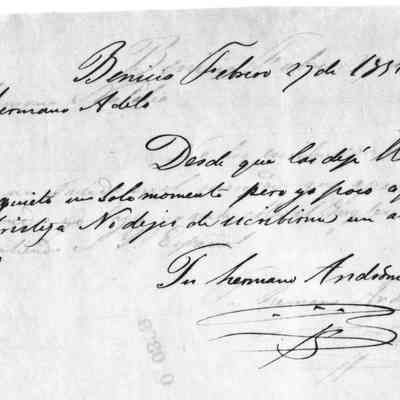 Benicia Febrero 27 de 185
hermano Adelo
Desde que las dejé
quieto un solo momento pero yo poco a
tristeza No dejes de escribirme un
Tu hermano Andrónico